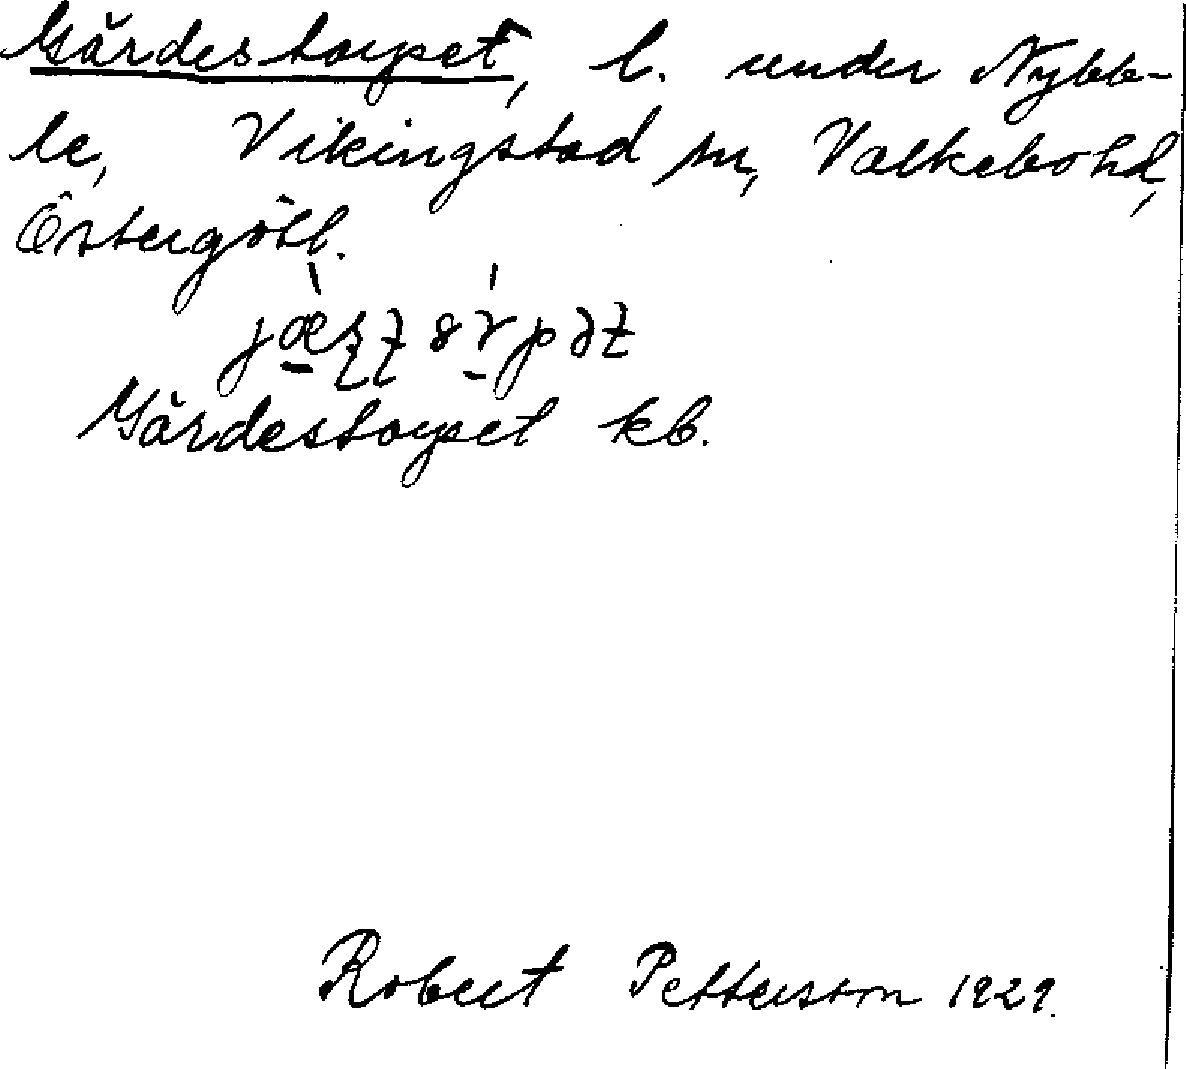 Gärdestorpet, l. under Nybb-
le, Vikingstad sn, Valkebo hd,
Östergötl.
Gärdestorpet kb.
Robert Petterson 1929.